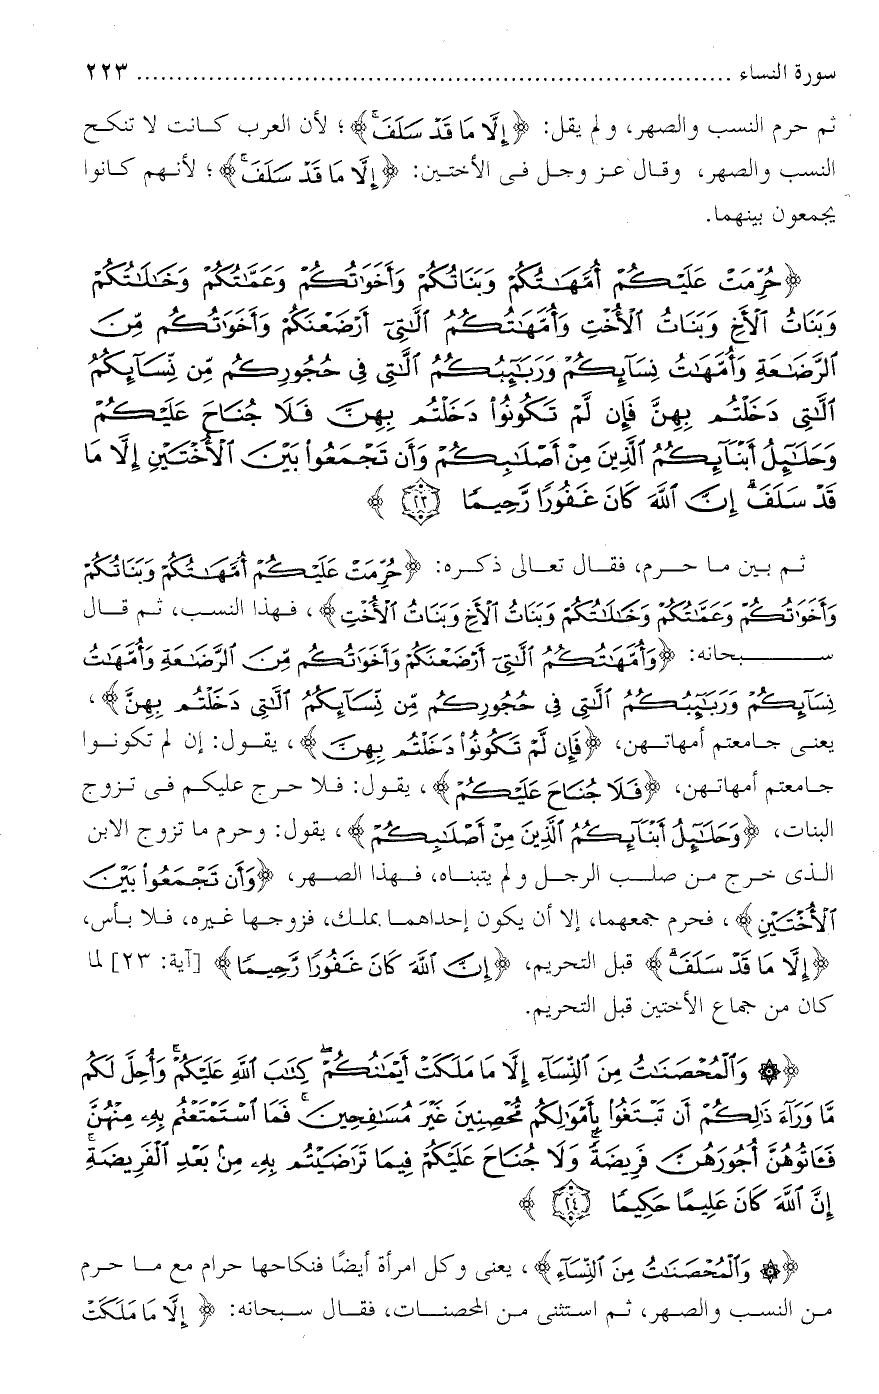 سورة النساء ........................................................................... ٢٢٣
ثم حرم النسب والصهر، ولم يقل: ﴿إِلَّا مَا قَدْ سَلَفَ﴾؛ لأن العرب كانت لا تنكح
النسب والصهر، وقال عز وجل فى الأختين: ﴿إِلَّا مَا قَدْ سَلَفَ﴾؛ لأنهم كانوا
يجمعون بينهما.
﴿حُرِّمَتْ عَلَيْكُمْ أُمَّهَـٰتُكُمْ وَبَنَاتُكُمْ وَأَخَوَٰتُكُمْ وَعَمَّـٰتُكُمْ وَخَـٰلَـٰتُكُمْ
وَبَنَاتُ ٱلْأَخِ وَبَنَاتُ ٱلْأُخْتِ وَأُمَّهَـٰتُكُمُ ٱلَّـٰتِىٓ أَرْضَعْنَكُمْ وَأَخَوَٰتُكُم مِّنَ
ٱلرَّضَـٰعَةِ وَأُمَّهَـٰتُ نِسَآئِكُمْ وَرَبَـٰٓئِبُكُمُ ٱلَّـٰتِى فِى حُجُورِكُم مِّن نِّسَآئِكُمُ
ٱلَّـٰتِى دَخَلْتُم بِهِنَّ فَإِن لَّمْ تَكُونُوا۟ دَخَلْتُم بِهِنَّ فَلَا جُنَاحَ عَلَيْكُمْ
وَحَلَـٰٓئِلُ أَبْنَآئِكُمُ ٱلَّذِينَ مِنْ أَصْلَـٰبِكُمْ وَأَن تَجْمَعُوا۟ بَيْنَ ٱلْأُخْتَيْنِ إِلَّا مَا
قَدْ سَلَفَ ۗ إِنَّ ٱللَّهَ كَانَ غَفُورًا رَّحِيمًا ٢٣﴾
ثم بين ما حرم، فقال تعالى ذكره: ﴿حُرِّمَتْ عَلَيْكُمْ أُمَّهَـٰتُكُمْ وَبَنَاتُكُمْ
وَأَخَوَٰتُكُمْ وَعَمَّـٰتُكُمْ وَخَـٰلَـٰتُكُمْ وَبَنَاتُ ٱلْأَخِ وَبَنَاتُ ٱلْأُخْتِ﴾، فهذا النسب، ثم قال
سبحانه: ﴿وَأُمَّهَـٰتُكُمُ ٱلَّـٰتِىٓ أَرْضَعْنَكُمْ وَأَخَوَٰتُكُم مِّنَ ٱلرَّضَـٰعَةِ وَأُمَّهَـٰتُ
نِسَآئِكُمْ وَرَبَـٰٓئِبُكُمُ ٱلَّـٰتِى فِى حُجُورِكُم مِّن نِّسَآئِكُمُ ٱلَّـٰتِى دَخَلْتُم بِهِنَّ﴾،
يعنى جامعتم أمهاتهن، ﴿فَإِن لَّمْ تَكُونُوا۟ دَخَلْتُم بِهِنَّ﴾، يقول: إن لم تكونوا
جامعتم أمهاتهن، ﴿فَلَا جُنَاحَ عَلَيْكُمْ﴾، يقول: فلا حرج عليكم فى تزوج
البنات، ﴿وَحَلَـٰٓئِلُ أَبْنَآئِكُمُ ٱلَّذِينَ مِنْ أَصْلَـٰبِكُمْ﴾، يقول: وحرم ما تزوج الابن
الذى خرج من صلب الرجل ولم يتبناه، فهذا الصهر، ﴿وَأَن تَجْمَعُوا۟ بَيْنَ
ٱلْأُخْتَيْنِ﴾، فحرم جمعهما، إلا أن يكون إحداهما بملك، فزوجها غيره، فلا بأس،
﴿إِلَّا مَا قَدْ سَلَفَ ۗ﴾ قبل التحريم، ﴿إِنَّ ٱللَّهَ كَانَ غَفُورًا رَّحِيمًا﴾ [آية: ٢٣] لما
كان من جماع الأختين قبل التحريم.
﴿۞ وَٱلْمُحْصَنَـٰتُ مِنَ ٱلنِّسَآءِ إِلَّا مَا مَلَكَتْ أَيْمَـٰنُكُمْ ۖ كِتَـٰبَ ٱللَّهِ عَلَيْكُمْ ۚ وَأُحِلَّ لَكُم
مَّا وَرَآءَ ذَٰلِكُمْ أَن تَبْتَغُوا۟ بِأَمْوَٰلِكُم مُّحْصِنِينَ غَيْرَ مُسَـٰفِحِينَ ۚ فَمَا ٱسْتَمْتَعْتُم بِهِۦ مِنْهُنَّ
فَـَٔاتُوهُنَّ أُجُورَهُنَّ فَرِيضَةً ۚ وَلَا جُنَاحَ عَلَيْكُمْ فِيمَا تَرَٰضَيْتُم بِهِۦ مِنۢ بَعْدِ ٱلْفَرِيضَةِ ۚ
إِنَّ ٱللَّهَ كَانَ عَلِيمًا حَكِيمًا ٢٤﴾
﴿۞ وَٱلْمُحْصَنَـٰتُ مِنَ ٱلنِّسَآءِ﴾، يعنى وكل امرأة أيضًا فنكاحها حرام مع ما حرم
من النسب والصهر، ثم استثنى من المحصنات، فقال سبحانه: ﴿إِلَّا مَا مَلَكَتْ